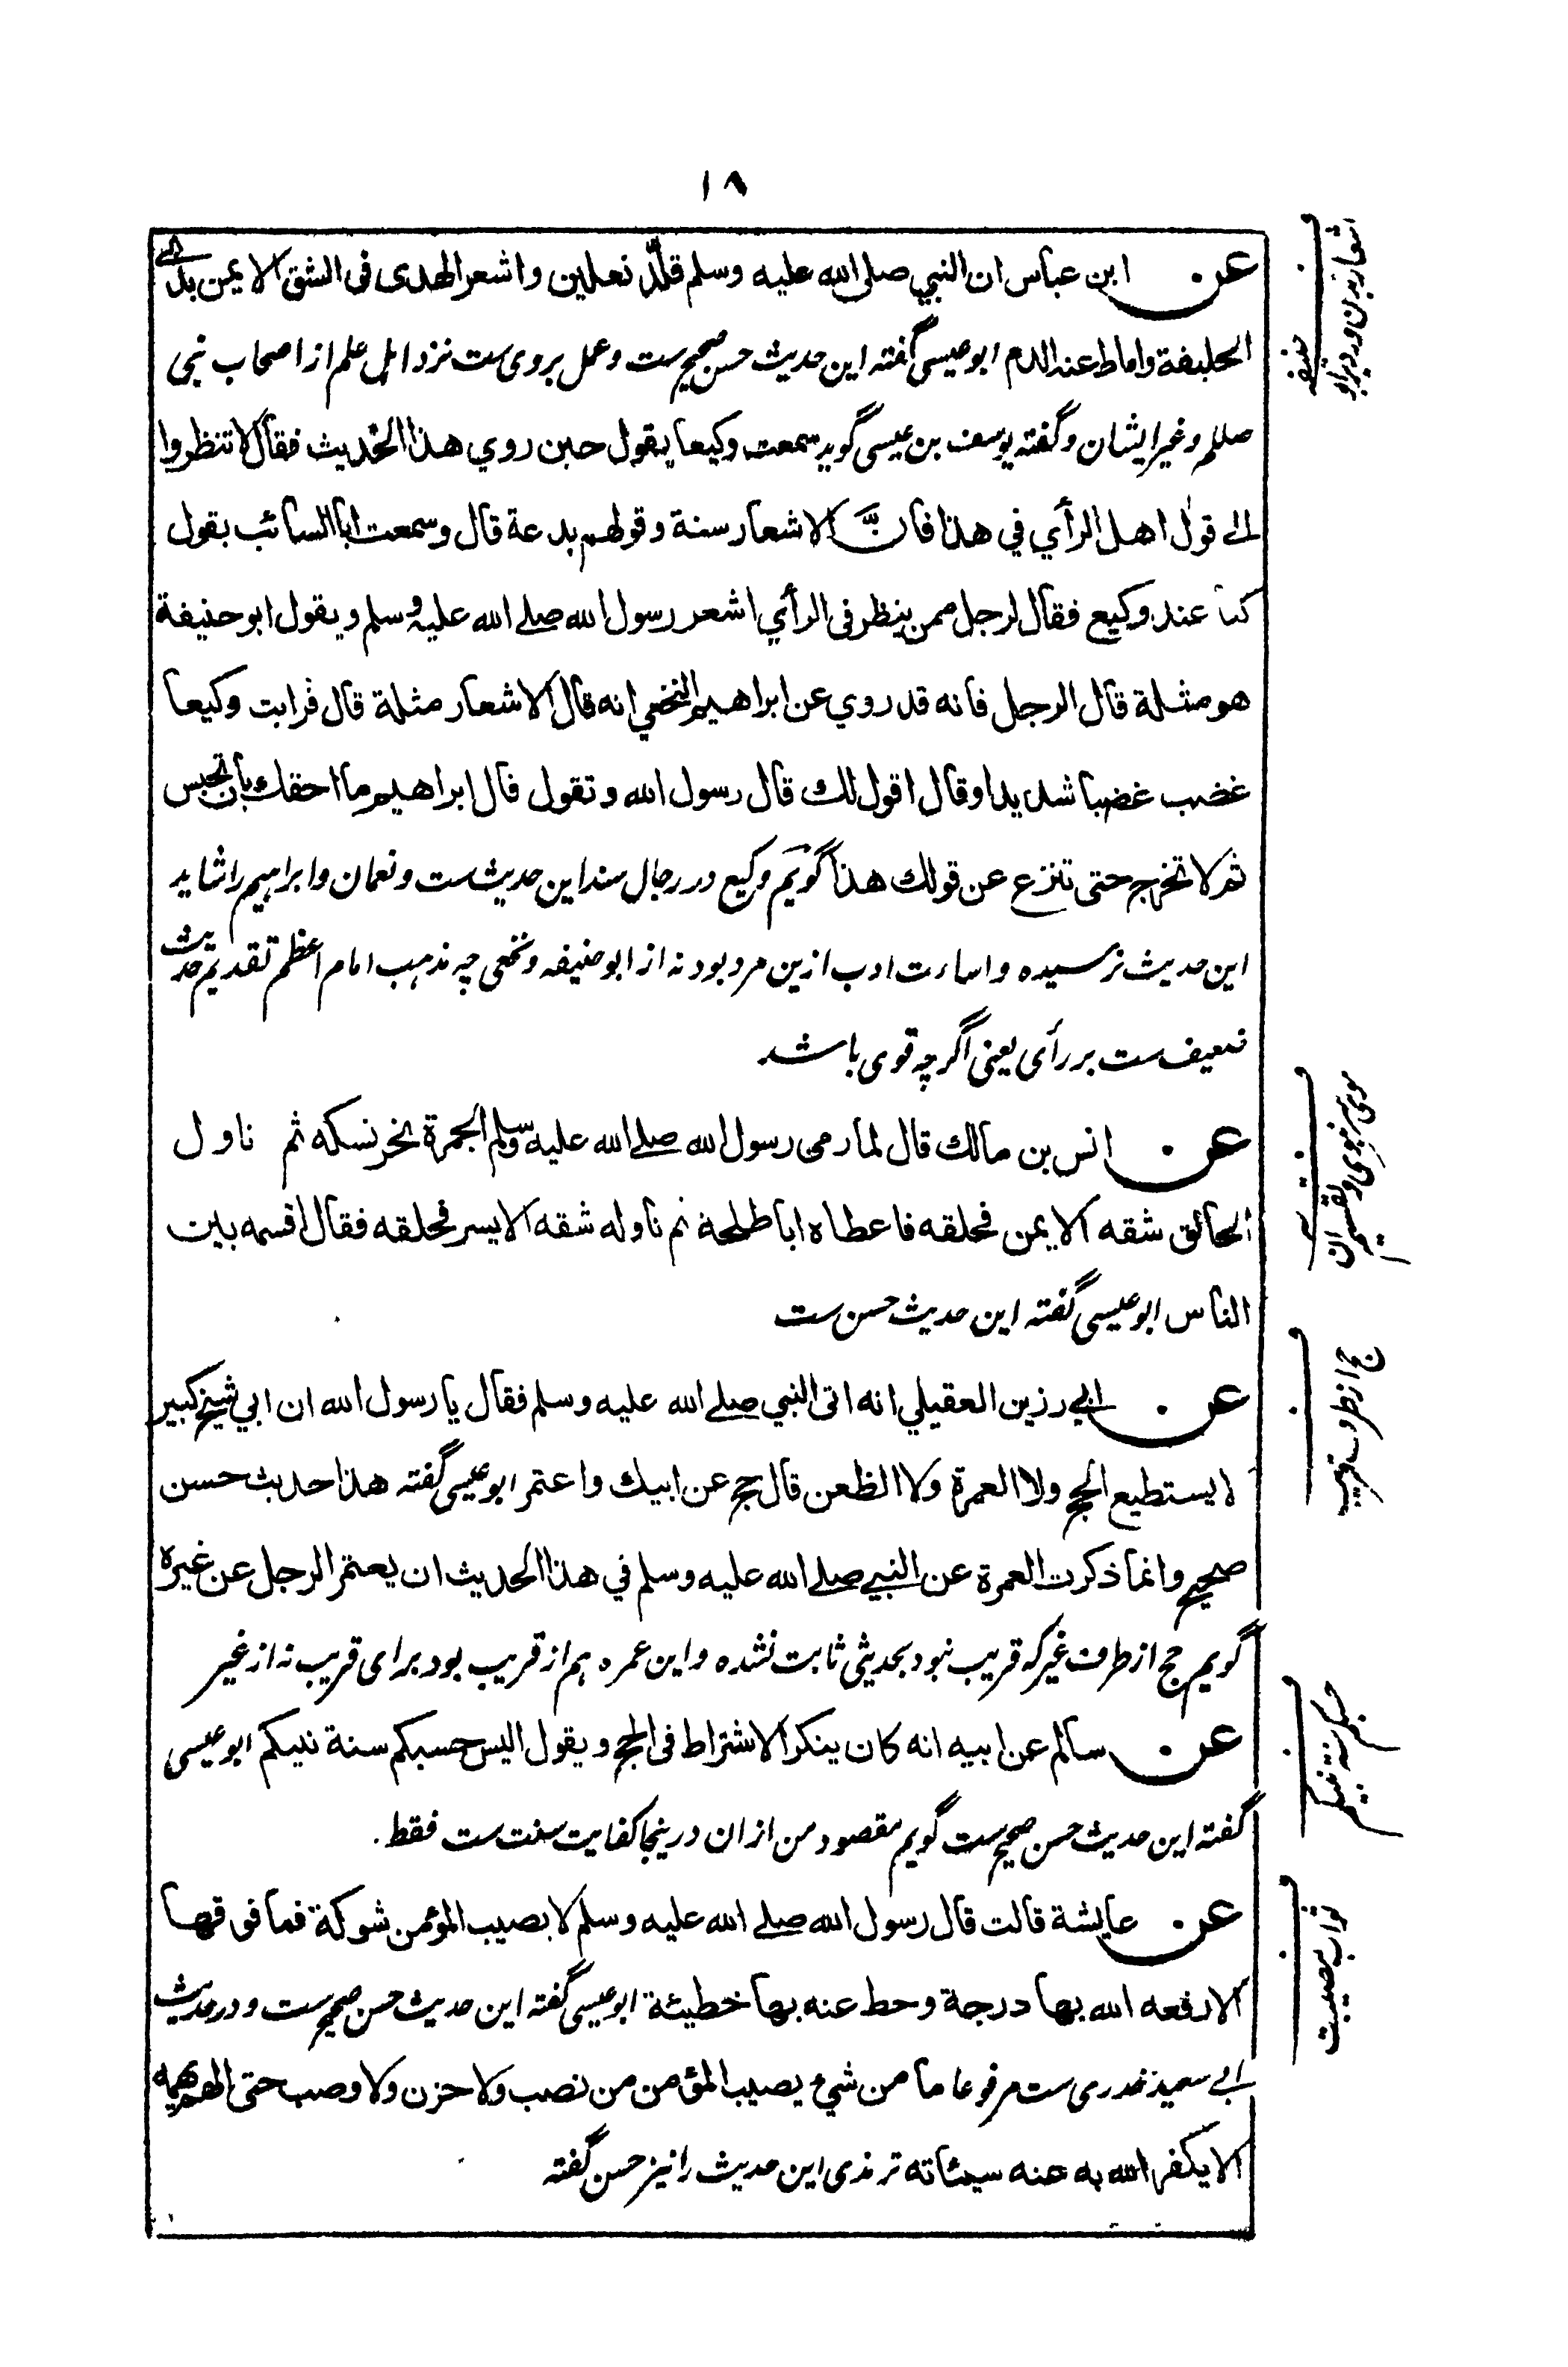 ١٨
عن ابن عباس ان النبي صلى الله عليه وسلم قلّد نعلين واشعر الهدى فى الشق الايمن بذى
الحليفة واماط عنه الدم ابو عیسی گفته این حدیث حسن صحیح ست وعمل بروی ست نزد اہل علم از اصحاب نبی
صللم وغیر ایشان وگفته یوسف بن عیسی گوید سمعت وكيعا يقول حين روي هذا الحديث فقال لا تنظروا
الى قول اهل الرأي في هذا فانَّ الاشعار سنة وقولهم بدعة قال وسمعت ابا السائب يقول
كنا عند وكيع فقال لرجل ممن ينظر فى الرأي اشعر رسول الله صلے الله عليه وسلم ويقول ابو حنيفة
هو مثلة قال الرجل فانه قد روي عن ابراهيم النخعي انه قال الاشعار مثلة قال فرايت وكيعا
غضب غضبا شديدا وقال اقول لك قال رسول الله وتقول قال ابراهيم ما احقك بان تحبس
ثم لا تخرج حتى تنزع عن قولك هذا گویم وکیع در رجال سند این حدیث ست ونعمان وابراہیم را شاید
این حدیث نرسیده واساءت ادب ازین مرد بود نه از ابو حنیفه ونخعی چه مذہب امام اعظم تقدیم حدیث
ضعیف ست بر رأی یعنی اگرچه قوی باشد
عن انس بن مالك قال لما رمى رسول الله صلے الله عليه وسلم الجمرة نحر نسكه ثم ناول
الحالق شقه الايمن فحلقه فاعطاه ابا طلحة ثم ناوله شقه الايسر فحلقه فقال اقسمه بين
الناس ابو عیسی گفته این حدیث حسن ست
عن ابي رزين العقيلي انه اتى النبي صلے الله عليه وسلم فقال يا رسول الله ان ابي شيخ كبير
لا يستطيع الحج ولا العمرة ولا الظعن قال حج عن ابيك واعتمر ابو عیسی گفته هذا حديث حسن
صحيح وانما ذكرت العمرة عن النبي صلے الله عليه وسلم في هذا الحديث ان يعتمر الرجل عن غيره
گویم حج از طرف غیر که قریب نبود بحدیثی ثابت نشده واین عمره ہم از قریب بود برای قریب نه از غیر
عن سالم عن ابيه انه كان ينكر الاشتراط فى الحج ويقول اليس حسبكم سنة نبيكم ابو عیسی
گفته این حدیث حسن صحیح ست گویم مقصود من ازان درینجا کفایت سنت ست فقط.
عن عايشة قالت قال رسول الله صلے الله عليه وسلم لا يصيب المؤمن شوكة فما فوقها
الا رفعه الله بها درجة وحط عنه بها خطيئة ابو عیسی گفته این حدیث حسن صحیح ست ودر حدیث
ابی سعید خدری ست مرفوعا ما من شيء يصيب المؤمن من نصب ولا حزن ولا وصب حتى الهم يهمه
الا يكفر الله به عنه سيئاته ترمذی این حدیث را نیز حسن گفته
اشعار بدن ورد بر ابو
حنیفه
موی سر نبوی وتقسیم آن
حج از طرف قریب
حسبکم سنة نبیکم
ثواب مصیبت